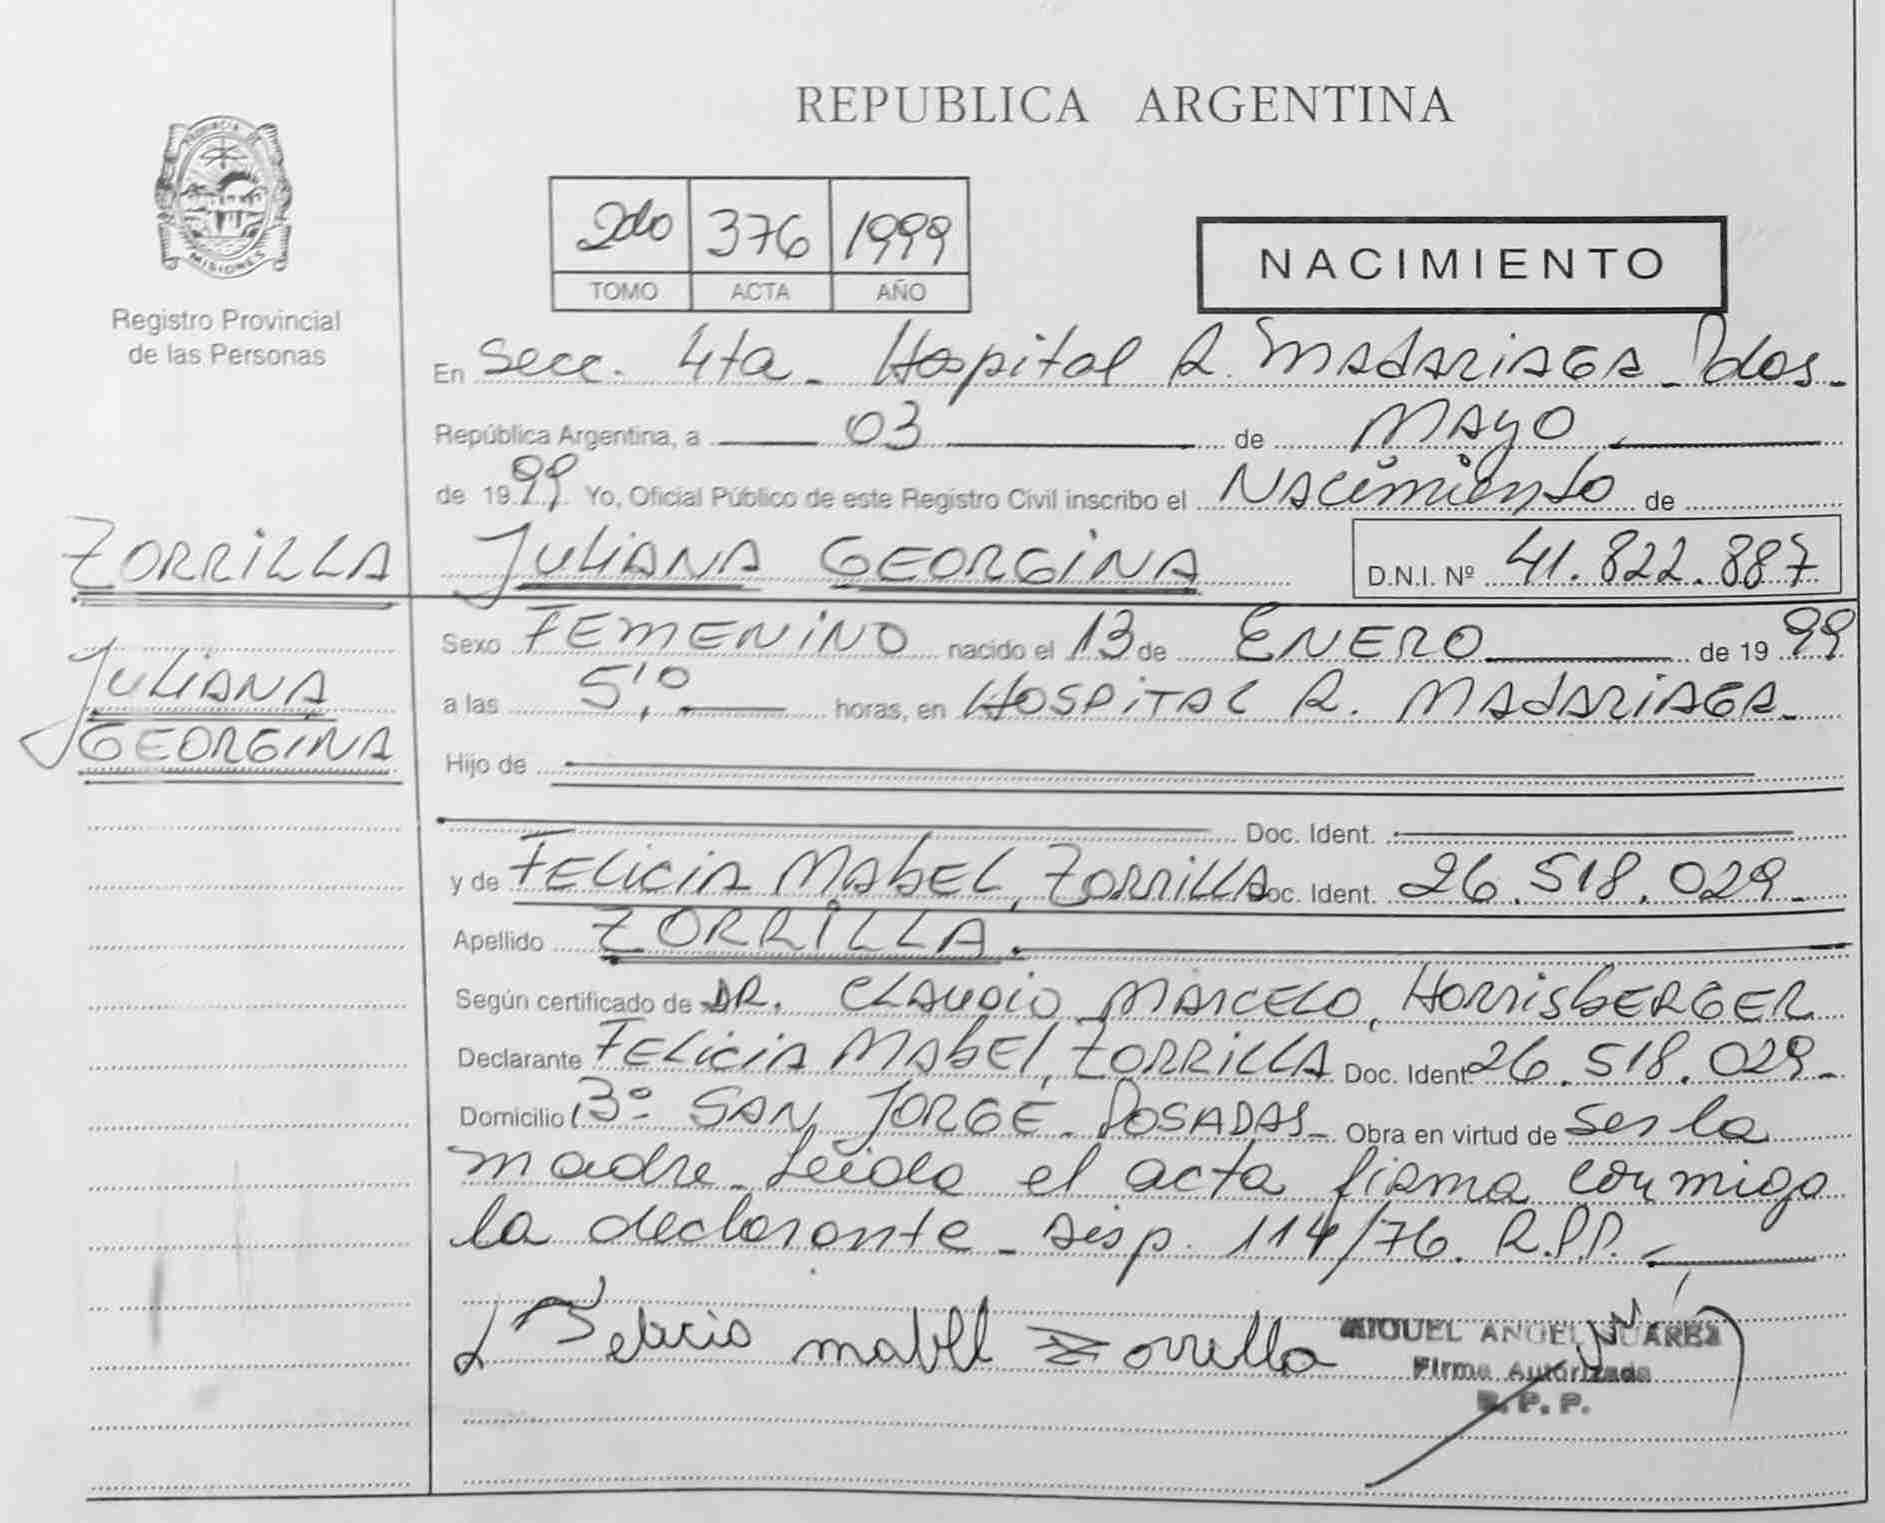 REPUBLICA ARGENTINA
PROVINCIA DE
MISIONES
Registro Provincial
de las Personas
2do 376 1999
TOMO ACTA AÑO
NACIMIENTO
En Secc. 4ta - Hospital R. MADARIAGA - Pdas -
República Argentina, a 03 de MAYO
de 1999. Yo, Oficial Público de este Registro Civil inscribo el NACimiento de
ZORRILLA JULIANA GEORGINA D.N.I. Nº 41.822.887
Sexo FEMENINO nacido el 13 de ENERO de 1999
JULIANA
GEORGINA
a las 5,10 horas, en HOSPITAL R. MADARIAGA -
Hijo de
Doc. Ident.
y de FELICIA MABEL, ZORRILLA Doc. Ident. 26.518.029 -
Apellido ZORRILLA.
Según certificado de DR. CLAUDIO MARCELO, HORRISBERGER
Declarante FELICIA MABEL, ZORRILLA Doc. Ident 26.518.029 -
Domicilio Bº SAN JORGE - POSADAS - Obra en virtud de ser la
madre - Leida el acta firma conmigo
la declarante - Disp. 114/76. R.P.P. -
Felicia mabel Zorrilla
MIGUEL ANGEL SUAREZ
Firma Autorizada
R. P. P.